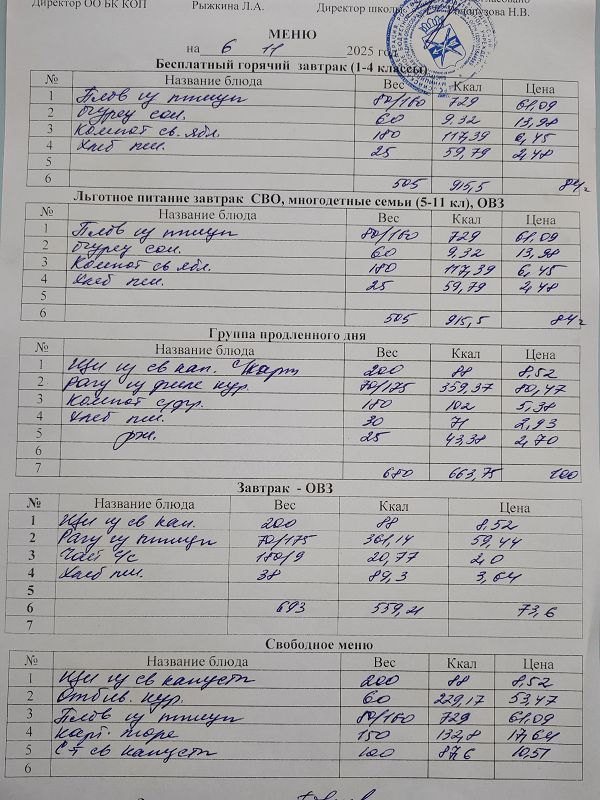 Директор ОО БК КОП Рыжкина Л.А. Директор школы Н.В.
МЕНЮ
на 6 11 2025 год
Бесплатный горячий завтрак (1-4 классы)
№ Название блюда Вес Ккал Цена
1 Плов из птицы 80/160 729 61,09
2 Огурец сол. 60 9,32 13,98
3 Компот св. ябл. 180 117,39 6,45
4 Хлеб пш. 25 59,79 2,48
5
6 505 915,5 84
Льготное питание завтрак СВО, многодетные семьи (5-11 кл), ОВЗ
№ Название блюда Вес Ккал Цена
1 Плов из птицы 80/160 729 61,09
2 Огурец сол. 60 9,32 13,98
3 Компот св ябл. 180 117,39 6,45
4 Хлеб пш. 25 59,79 2,48
5
6 505 915,5 84
Группа продленного дня
№ Название блюда Вес Ккал Цена
1 Щи из св кап. с/карт 200 88 8,52
2 Рагу из филе кур. 70/175 359,37 80,47
3 Компот с/фр. 180 102 5,38
4 Хлеб пш. 30 71 2,93
5 рж. 25 43,38 2,70
6
7 680 663,75 100
Завтрак - ОВЗ
№ Название блюда Вес Ккал Цена
1 Щи из св кап. 200 88 8,52
2 Рагу из птицы 70/175 361,14 59,44
3 Чай ч/с 180/9 20,77 2,0
4 Хлеб пш. 38 89,3 3,64
5
6 693 559,21 73,6
7
Свободное меню
№ Название блюда Вес Ккал Цена
1 Щи из св капусты 200 88 8,52
2 Отбив. кур. 60 229,17 53,47
3 Плов из птицы 80/160 729 61,09
4 карт. пюре 150 132,8 17,64
5 С-т св капусты 100 87,6 10,57
6